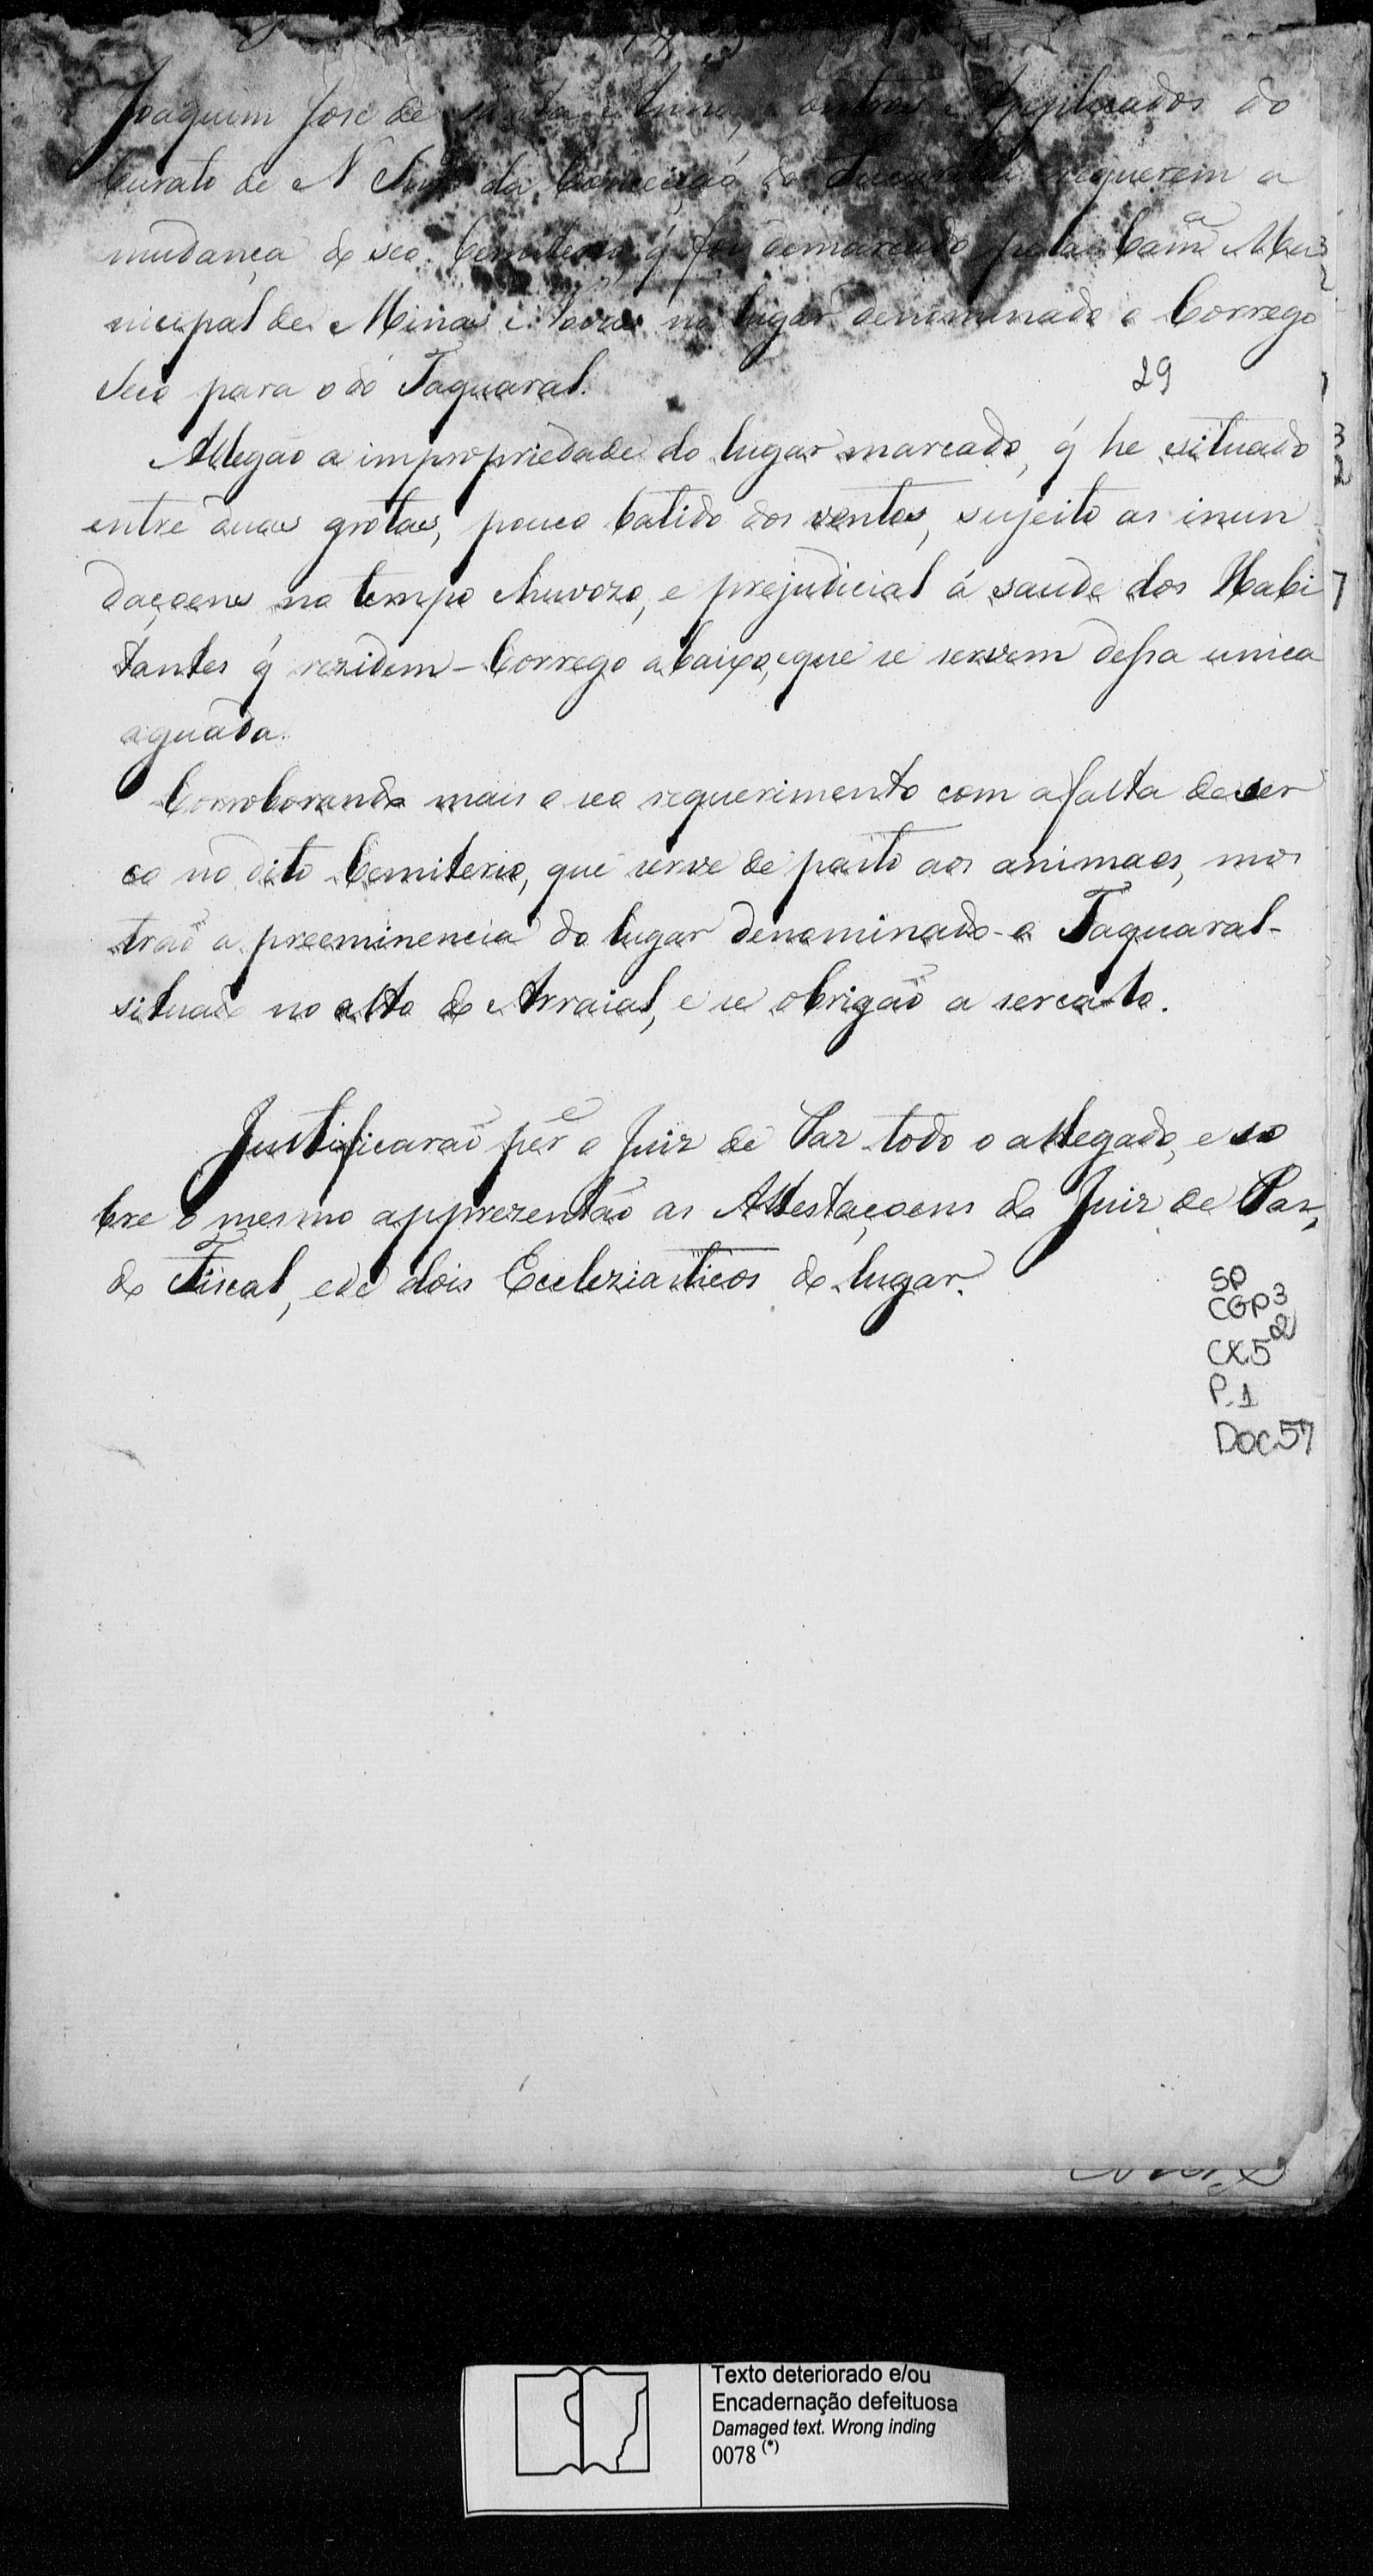 Joaquim Jose de Santa Anna, e outros Applicados do
Curato de N Snrª da Conceiçaó do requerem a
mudança do seo Cemiterio, q̃ foi demarcado pela Camª Mu
nicipal de Minas Novas no lugar denominado o Corrego
Seco para o do Taquaral.
29
Allegaõ a impropriedade do lugar marcado, q̃ he situado
entre duas grotas, pouco batido dos ventos, sujeito as inun
daçoens no tempo chuvozo, e prejudicial á saude dos Habi
tantes q̃ rezidem - Corrego abaixo, e que se servem dessa unica
aguada.
Corroborando mais o seo requerimento com a falta de ser
co no dito Cemiterio, que serve de pasto aos animaes, mos
traõ a preeminencia do lugar denominado - o Taquaral -
situado no alto do Arraial, e se obrigaõ a serca-lo.
Justificaraõ per.e o Juiz de Paz todo o allegado, e so
bre o mesmo apprezentaõ as Attestaçoens do Juiz de Paz,
do Fiscal, e de dois Eccleziasticos do lugar.
SP
CGP3
CX.5
2
P.1
Doc.57
Texto deteriorado e/ou
Encadernação defeituosa
Damaged text. Wrong inding
0078 (*)